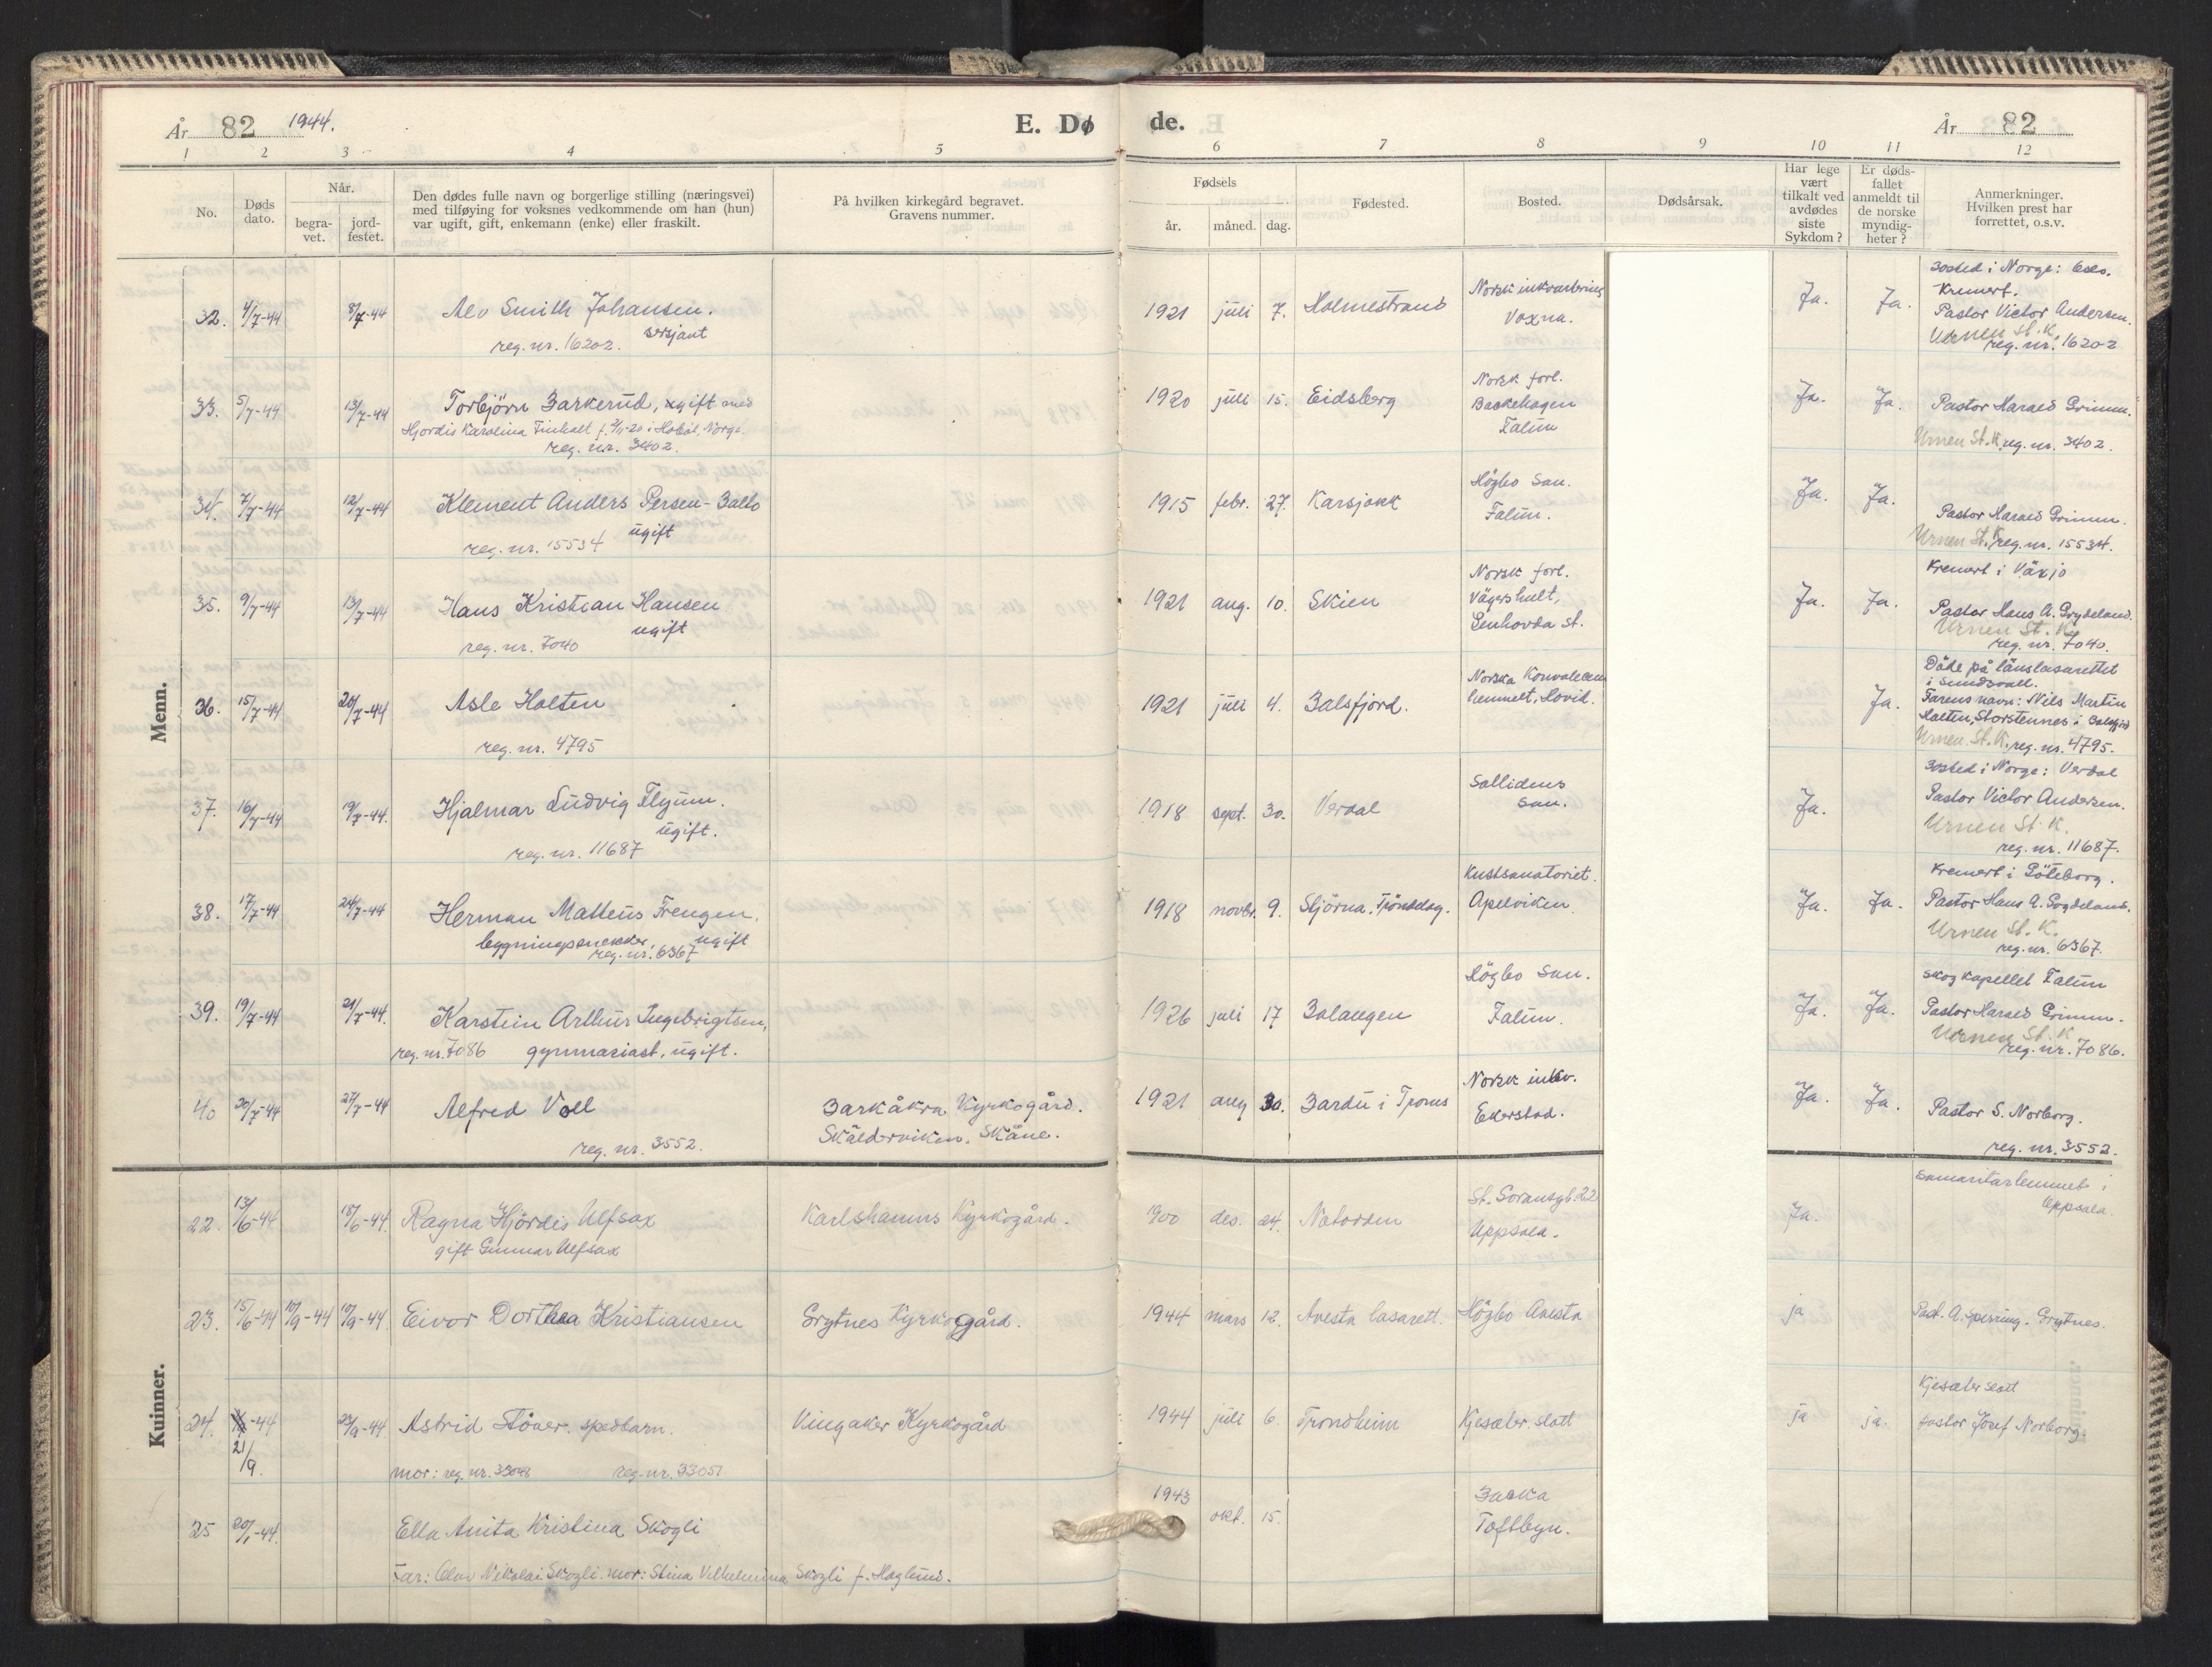 År 82 1944.
E. Dø de.
År 82
1 2 3 4 5 6 7 8 9 10 11 12
No.
Døds dato.
Når.
begra- vet.
jord- festet.
Den dødes fulle navn og borgerlige stilling (næringsvei)
med tilføying for voksnes vedkommende om han (hun)
var ugift, gift, enkemann (enke) eller fraskilt.
På hvilken kirkegård begravet.
Gravens nummer.
Fødsels
år. måned. dag.
Fødested.
Bosted.
Dødsårsak.
Har lege
vært
tilkalt ved
avdødes
siste
Sykdom?
Er døds-
fallet
anmeldt til
de norske
myndig-
heter?
Anmerkninger.
Hvilken prest har
forrettet, o.s.v.
Menn.
32. 4/7-44 8/7-44 Alv Smith Johansen.
sersjant
reg. nr. 16202.
1921 juli 7. Holmestrand
Norsk inkvartering
Voxna.
Ja. Ja.
Bosted i Norge: Oslo.
Kremert.
Pastor Victor Andersen.
Urnen St. K.
reg. nr. 16202
33. 5/7-44 13/7-44 Torbjörn Barkerud, gift med
Hjordis Karolina Finholt f. /11-20 i Hobøl, Norge.
reg. nr. 3402.
1920 juli 15. Eidsberg
Norsk forl.
Backehagen
Falun
Ja. Ja.
Pastor Harald Grimm.
Urnen St. K. reg. nr. 3402.
34. 7/7-44 12/7-44 Klement Anders Persen-Balto
ugift
reg. nr. 15534
1915 febr. 27. Karsjokk
Högbo San.
Falun.
Ja. Ja.
Pastor Harald Grimm.
Urnen St. K. reg. nr. 15534.
35. 9/7-44 13/7-44 Hans Kristian Hansen
ugift
reg. nr. 7040
1921 aug. 10. Skien
Norsk forl.
Vägershult,
Lenhovda st.
Ja. Ja.
Kremert i Växjö
Pastor Hans A. Grydeland.
Urnen St. K.
reg. nr. 7040.
36. 15/7-44 20/7-44 Asle Holten
reg. nr. 4795
1921 juli 4. Balsfjord.
Norska Konvalecent
hemmet, Hovid.
Ja.
Döde på länslasarettet
i Sundsvall.
Farens navn: Nils Martin
Holten, Storstennes i Balsfjord
Urnen St. K. reg. nr. 4795.
37. 16/7-44 19/7-44. Hjalmar Ludvig Flyum.
ugift.
reg. nr. 11687
1918 sept. 30. Verdal
Sallidens
San.
Ja.
Bosted i Norge: Verdal
Pastor Victor Andersen.
Urnen St. K.
reg. nr. 11687.
38. 17/7-44 24/7-44 Herman Matteus Frengen,
bygningssnekker, ugift
reg. nr. 6367
1918 novbr. 9. Stjörna, Trönddag.
Kustsanatoriet.
Apelviken.
Ja. Ja.
Kremert i Göteborg.
Pastor Hans A. Grydeland.
Urnen St. K.
reg. nr. 6367.
39. 19/7-44 21/7-44. Karstein Arthur Ingebrigtsen,
reg. nr. 7086 gymnasiast, ugift.
1926 juli 17 Balangen
Högbo San.
Falun.
Ja. Ja.
Skogkapellet Falun
Pastor Harald Grimm.
Urnen St. K
reg. nr. 7086.
40 20/7-44 27/7-44 Alfred Voll
reg. nr. 3552.
Barkåkra Kyrkogård.
Skälderviken, Skåne.
1921 aug 30. Bardu i Troms
Norsk inkv.
Ekerstad.
Ja. Ja.
Pastor S. Norborg.
reg. nr. 3552.
Kvinner.
22. 13/6-44 18/6-44. Ragna Hjördis Ulfsax
gift Gunnar Ulfsax
Karlshamns Kyrkogård.
1900 des. 24. Notodden
22
Uppsala.
Ja.
Samaritarhemmet i
Uppsala.
23. 15/6-44 10/9-44 10/9-44. Eivor Dorthea Kristiansen
Grytnes Kyrkogård.
1944 mars 12. Avesta lasarett. Högbo Avesta
ja
Past. A. Spirring. Grytnes.
24. -44 21/9. 23/9-44 Astrid Stöver. spedbarn.
mor: reg. nr. 33048 reg. nr. 33051
Vingaker Kyrkogård
1944 juli 6. Trondheim Kjesæter. slott
ja ja.
Kjesæter slott
pastor Josef Norborg.
25 20/1-44. Ella Anita Kristina Skogli
Far: Olav Nikolai Skogli. mor: Stina Vilhelmina Skogli f. Haglund.
1943 okt. 15.
Backa
Toftbyn.